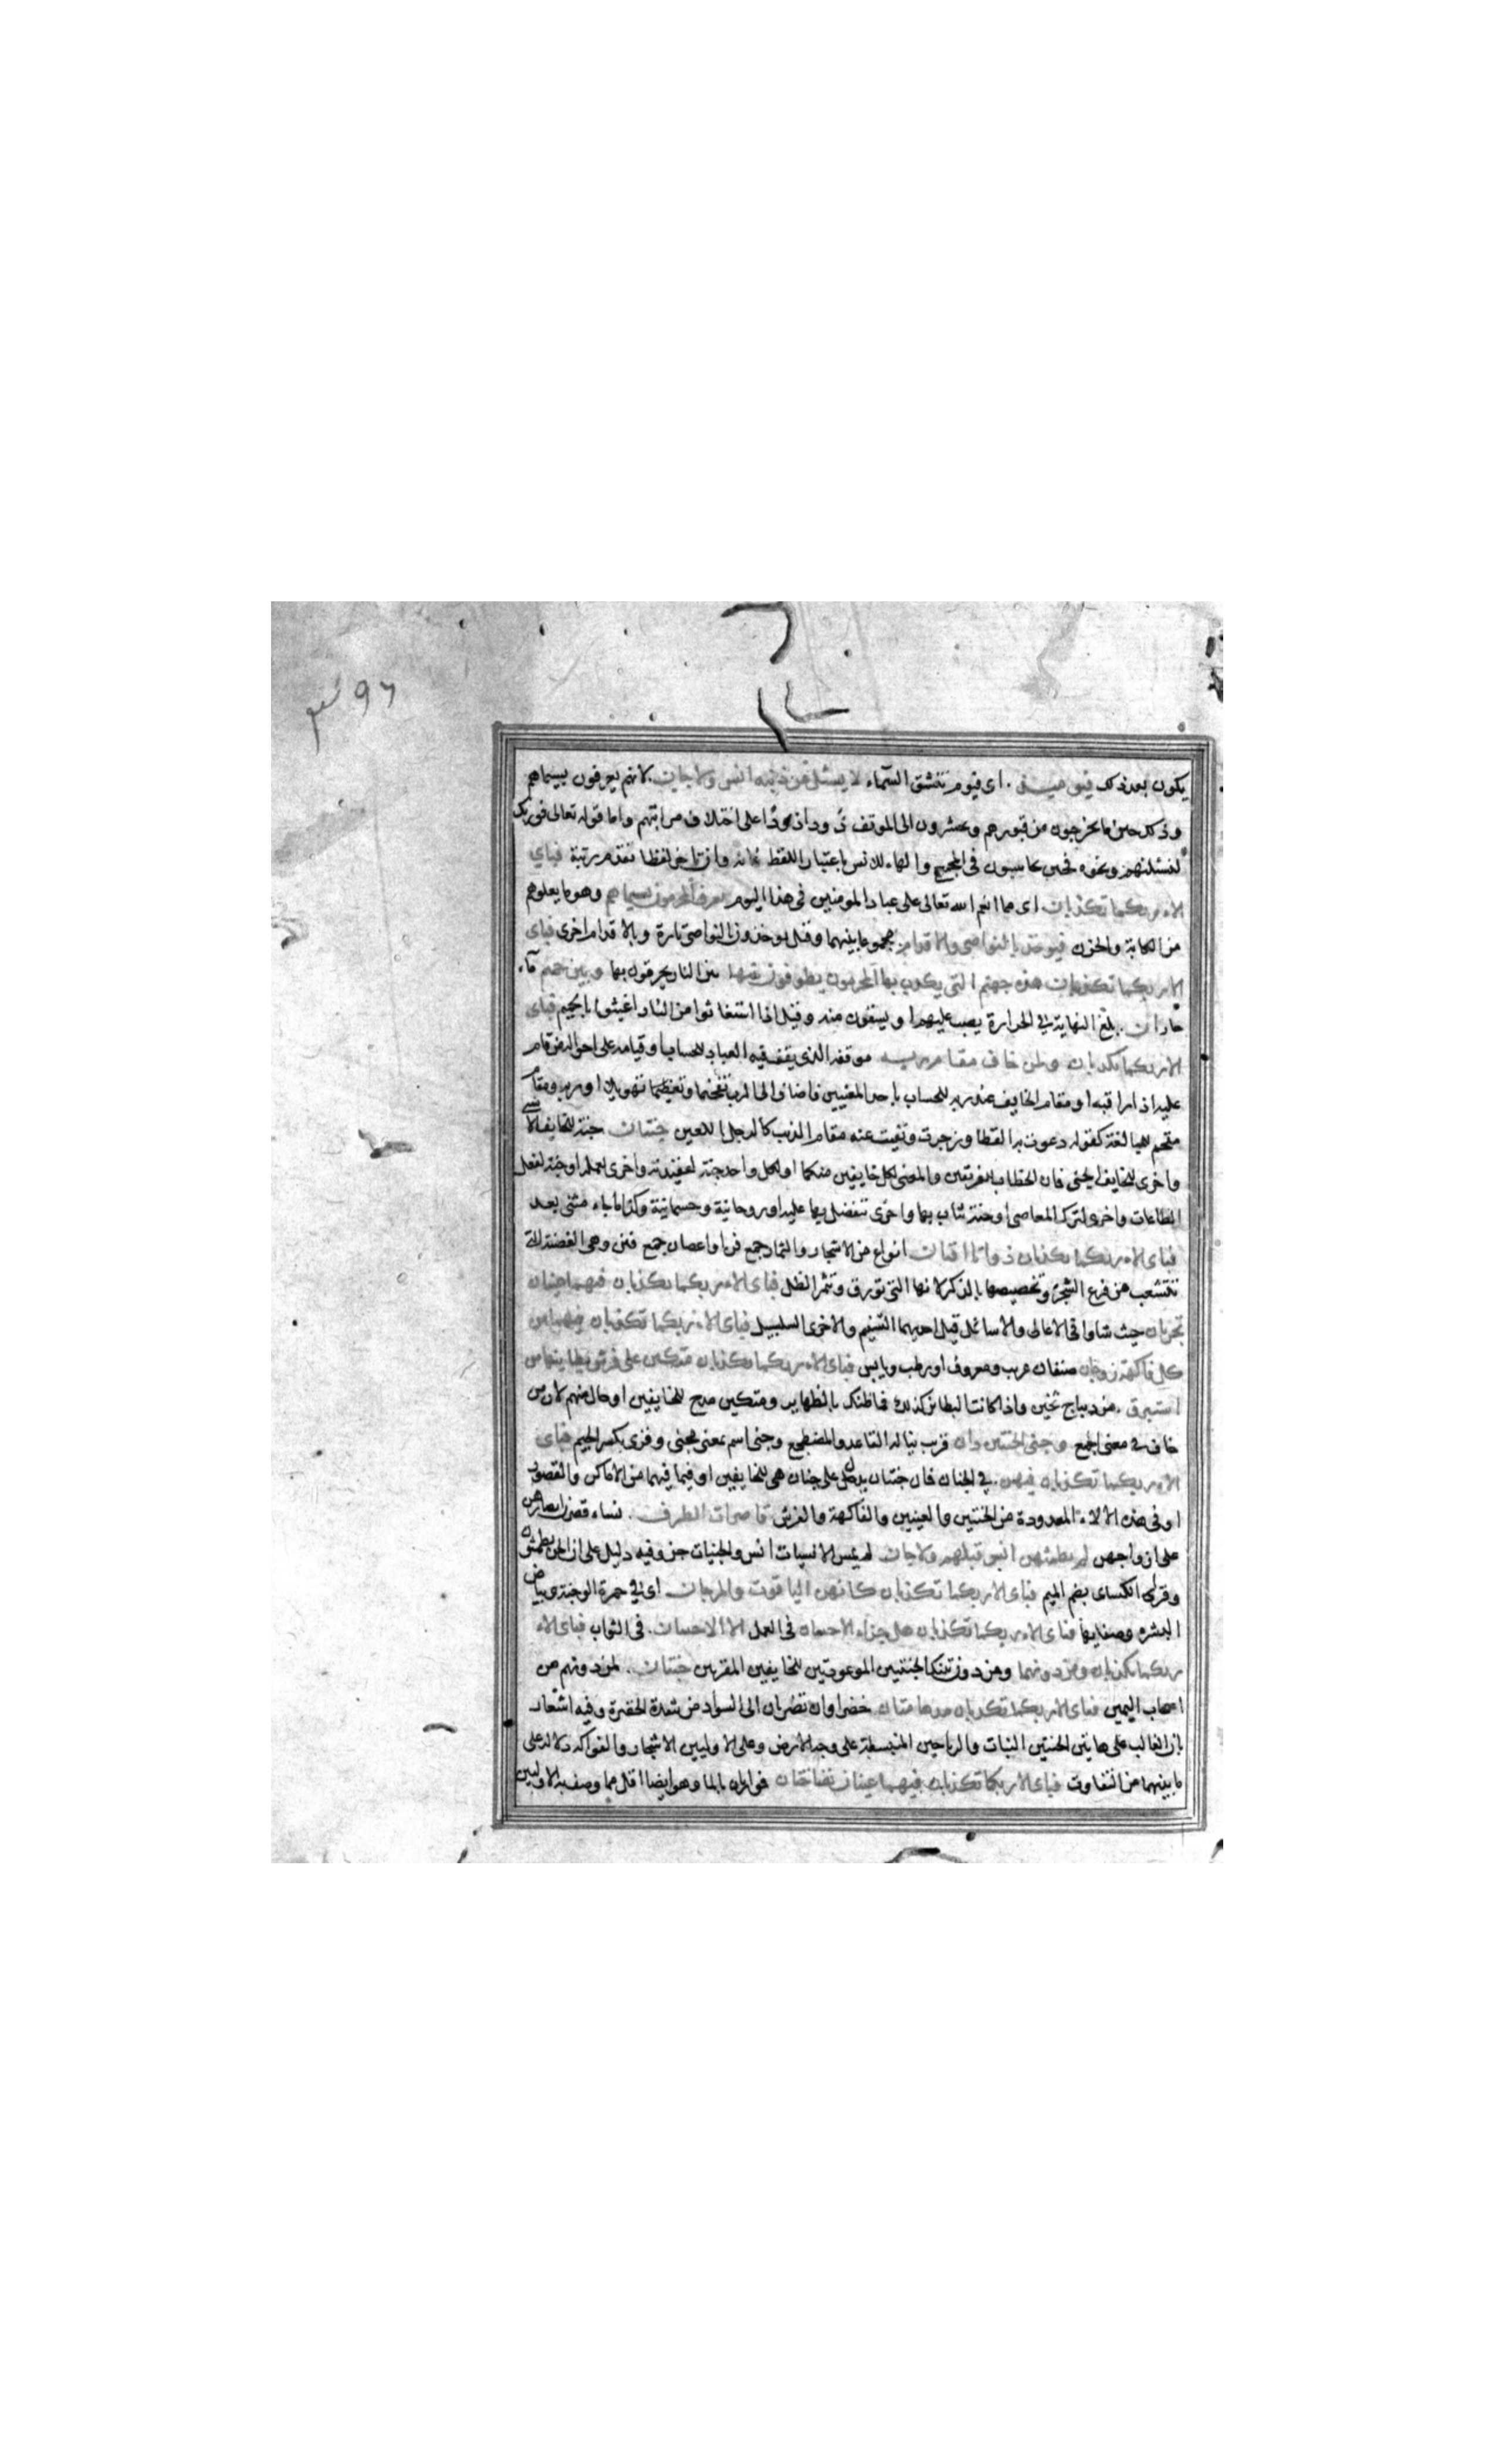 يكون بعد ذلك فيومئذ اى فيوم تنشق السماء لا يسئل عن ذنبه انس ولا جان لانهم يعرفون بسيماهم
وذلك حين ما يخرجون من قبورهم ويحشرون الى الموقف ذودا ذودا على اختلاف مراتبهم واما قوله تعالى فوربك
لنسئلنهم ونحوه فحين يحاسبون فى المجمع والهاء للانس باعتبار اللفظ فانه وان تاخر لفظا تقدم رتبة فباى
الاء ربكما تكذبان اى مما انعم الله تعالى على عباده المومنين فى هذا اليوم يعرف المجرمون بسيماهم وهو ما يعلوهم
من الكابة والحزن فيوخذ بالنواصى والاقدام مجموعا بينهما وقيل يوخذون بالنواصى تارة وبالاقدام اخرى فباى
الاء ربكما تكذبان هذه جهنم التى يكذب بها المجرمون يطوفون بينها بين النار يحرقون بها وبين حميم ماء
حار ان بلغ النهاية فى الحرارة يصب عليهم او يسقون منه وقيل اذا استغاثوا من النار اغيثوا بالحميم فباى
الاء ربكما تكذبان ولمن خاف مقام ربه موقفه الذى يقف فيه العباد للحساب او قيامه على احواله من قام
عليه اذا راقبه او مقام الخايف عند ربه للحساب باحد المعنيين فاضاف الى الرب تفخيما وتهويلا او ربه ومقام
مقحم للمبالغة كقوله ذعرت به القطا ونفيت عنه مقام الذئب كالرجل اللعين جنتان جنة للخايف الانسى
واخرى للخايف الجنى فان الخطاب للفريقين والمعنى لكل خايفين منكما او لكل واحد جنة لعقيدته واخرى لعمله او جنة لفعل
الطاعات واخرى لترك المعاصى او جنة يثاب بها واخرى يتفضل بها عليه او روحانية وجسمانية وكذا ما جاء مثنى بعد
فباى الاء ربكما تكذبان ذواتا افنان انواع من الاشجار والثمار جمع فن او اغصان جمع فنن وهى الغصنة التى
تتشعب من فرع الشجرة وتخصيصها بالذكر لانها التى تورق وتثمر الظل فباى الاء ربكما تكذبان فيهما عينان
تجريان حيث شاوا فى الاعالى والاسافل قيل احديهما التسنيم والاخرى السلسبيل فباى الاء ربكما تكذبان فيهما من
كل فاكهة زوجان صنفان غريب ومعروف او رطب ويابس فباى الاء ربكما تكذبان متكئين على فرش بطاينها من
استبرق من ديباج ثخين واذا كانت البطاين كذلك فما ظنك بالظهاير ومتكئين مدح للخايفين او حال منهم لان من
خاف فى معنى الجمع وجنى الجنتين دان قريب يناله القاعد والمضطجع وجنى اسم بمعنى مجنى وقرى بكسر الجيم فباى
الاء ربكما تكذبان فيهن فى الجنان فان جنتان يدل على جنان هى للخايفين او فيما فيهما من الاماكن والقصور
او فى هذه الالاء المعدودة من الجنتين والعينين والفاكهة والفرش قاصرات الطرف نساء قصرن ابصارهن
على ازواجهن لم يطمثهن انس قبلهم ولا جان لم يمس الانسيات انس والجنيات جن وفيه دليل على ان الجن يطمثون
وقرا الكسائى بضم الميم فباى الاء ربكما تكذبان كانهن الياقوت والمرجان اى فى حمرة الوجنة وبياض
البشرة وصفايها فباى الاء ربكما تكذبان هل جزاء الاحسان فى العمل الا الاحسان فى الثواب فباى الاء
ربكما تكذبان ومن دونهما ومن دون تينك الجنتين الموعودتين للخايفين المقربين جنتان لمن دونهم من
اصحاب اليمين فباى الاء ربكما تكذبان مدهامتان خضراوان تضربان الى السواد من شدة الخضرة وفيه اشعار
بان الغالب على هاتين الجنتين النبات والرياحين المنبسطة على وجه الارض وعلى الاوليين الاشجار والفواكه دلالة على
ما بينهما من التفاوت فباى الاء ربكما تكذبان فيهما عينان نضاختان فوارتان بالماء وهو ايضا اقل مما وصف به الاوليين